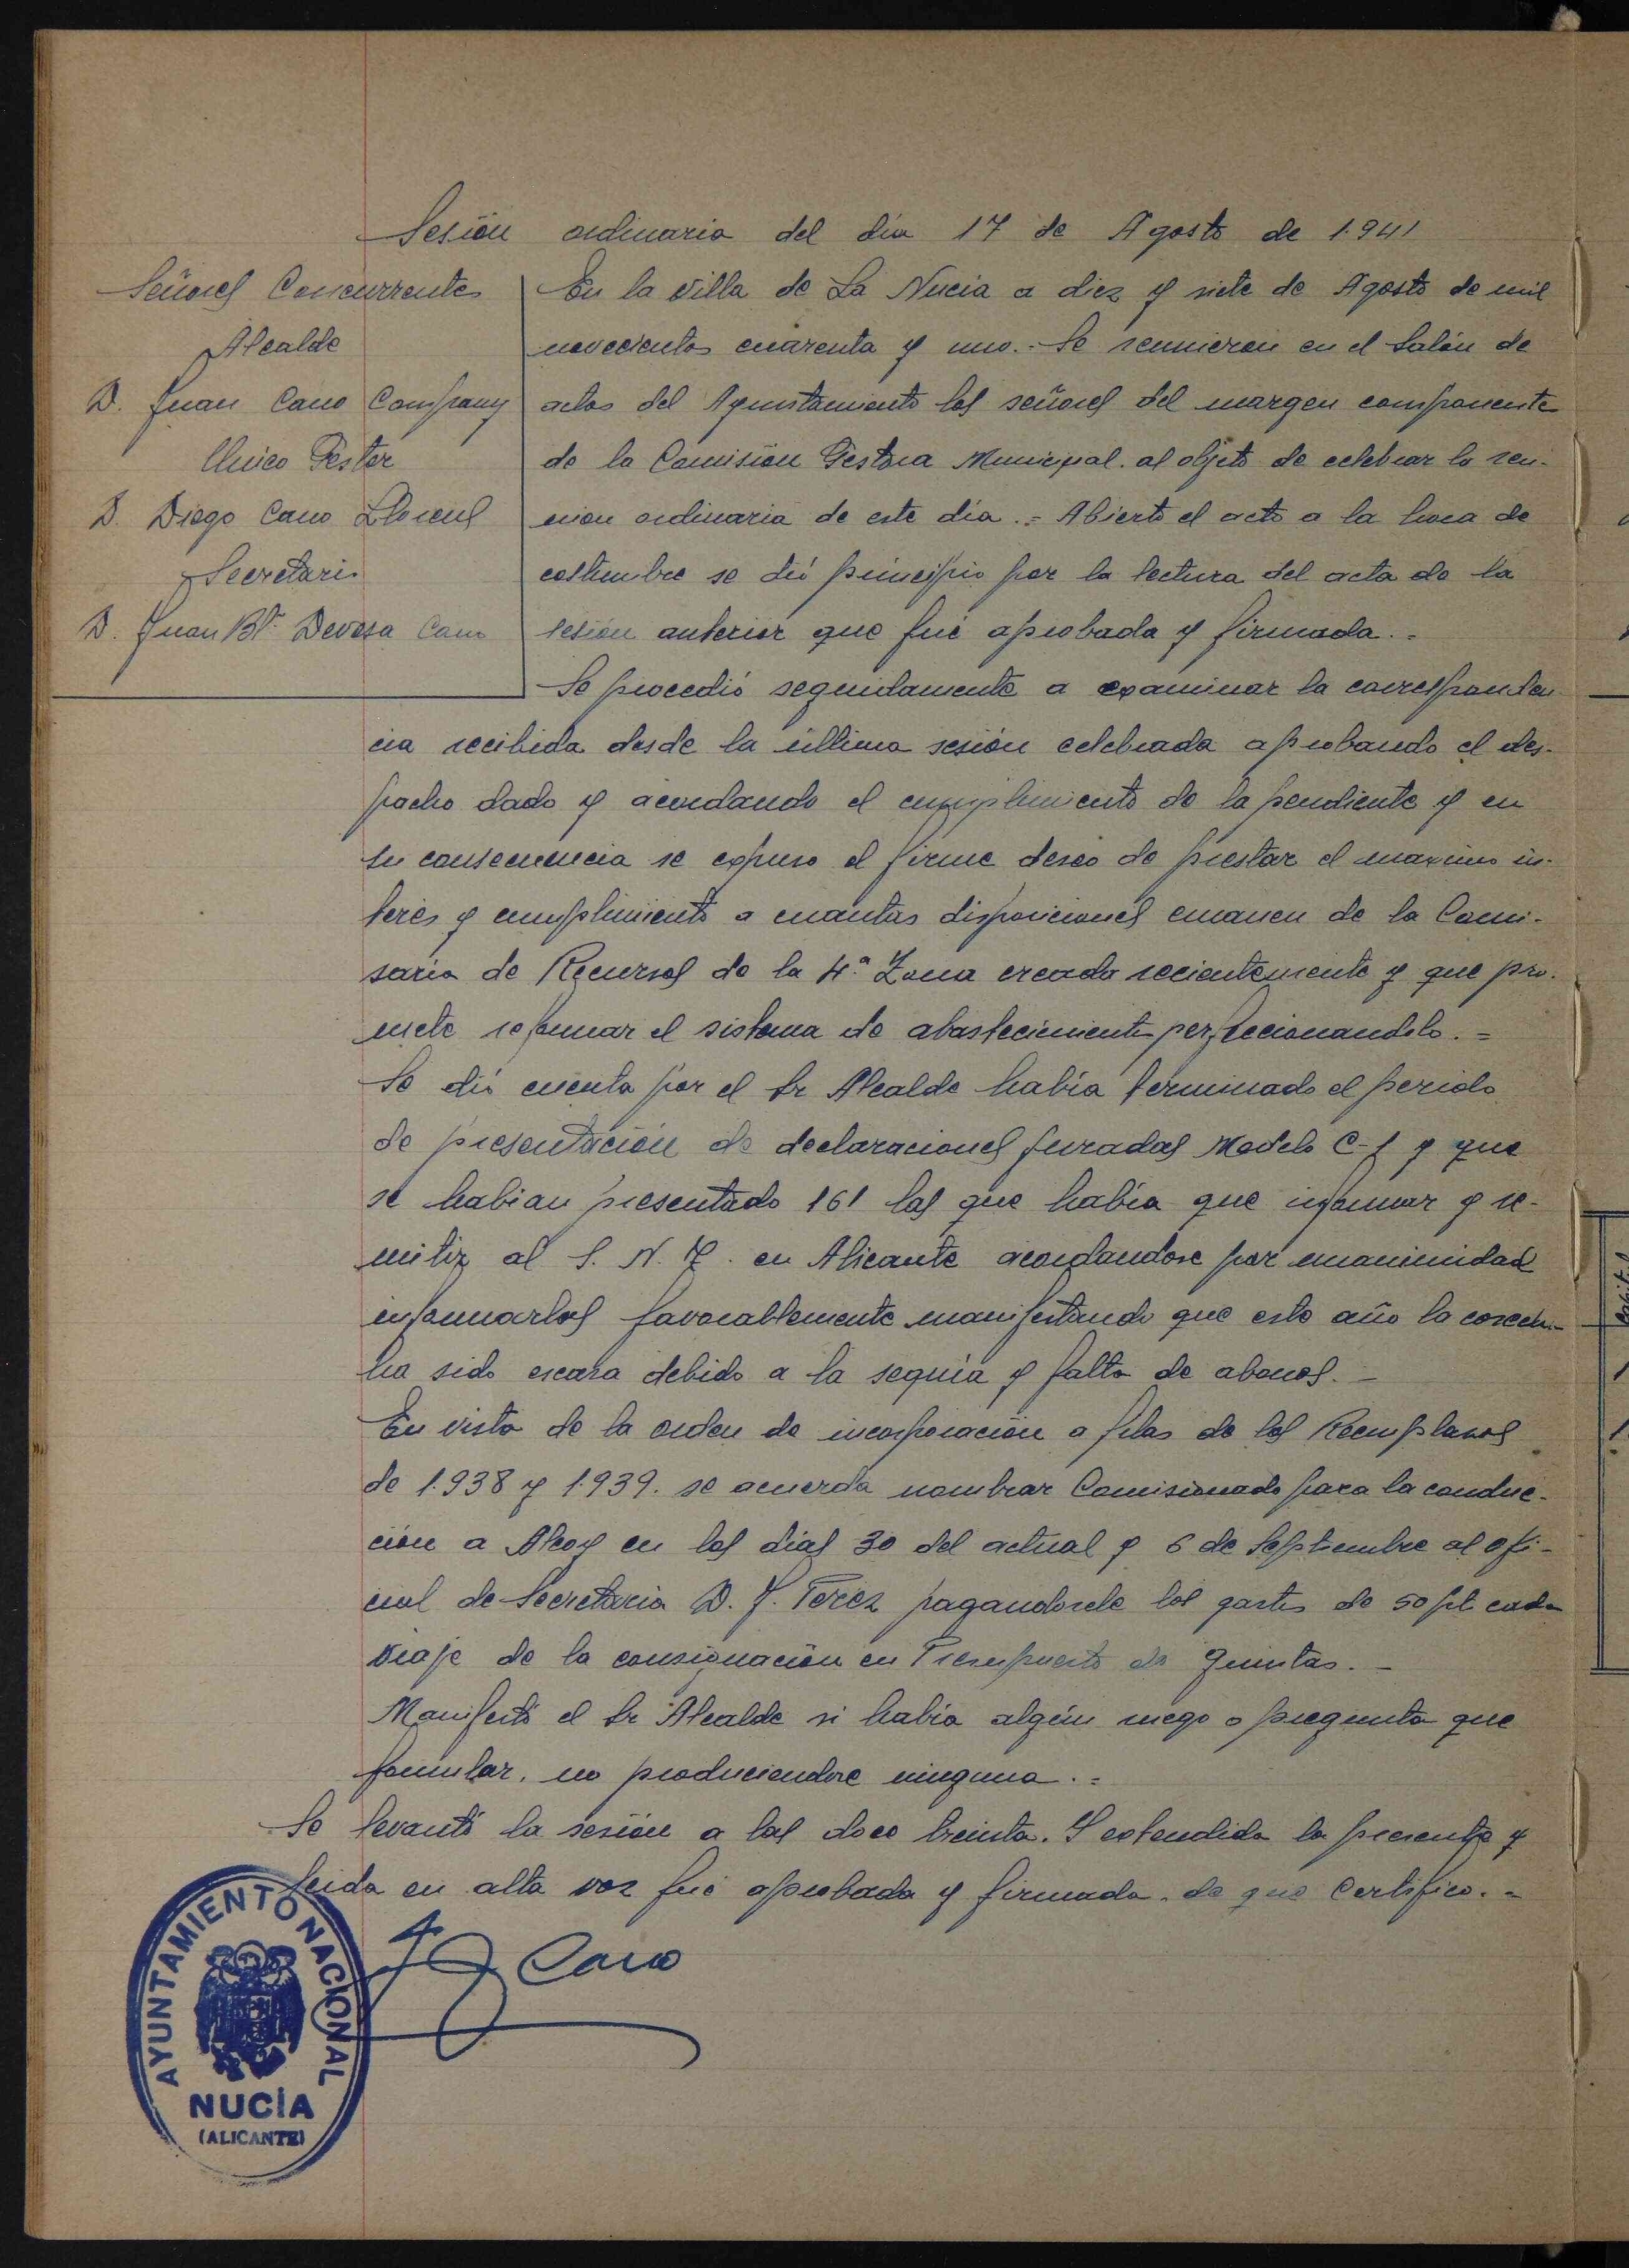 Sesión ordinaria del día 17 de Agosto de 1.941
Señores Concurrentes
Alcalde
D. Juan Cano Company
Unico Gestor
D. Diego Cano Llorens
Secretario
D. Juan Bta. Devesa Cano
En la villa de La Nucia a diez y siete de Agosto de mil
novecientos cuarenta y uno.- Se reunieron en el Salón de
actos del Ayuntamiento los señores del margen componente
de la Comisión Gestora Municipal. al objeto de celebrar la reu-
nion ordinaria de este día.= Abierto el acto a la hora de
costumbre se dió principio por la lectura del acta de la
sesión anterior que fué aprobada y firmada.=
Se procedió seguidamente a examinar la corresponden-
cia recibida desde la última sesión celebrada aprobando el des-
pacho dado y acordando el cumplimiento de la pendiente y en
su consecuencia se expuso el firme deseo de prestar el maximo in-
terés y cumplimiento a cuantas disposiciones emanen de la Comi-
saria de Recursos de la 4.ª Zona creada recientemente y que pro-
mete reformar el sistema de abastecimiento perfeccionandolo.=
Se dió cuenta por el Sr Alcalde había terminado el periodo
de presentación de declaraciones juradas Modelo C-1 y que
se habian presentado 161 las que había que informar y re-
mitir al S. N. T. en Alicante acordandose por unanimidad
informarlas favorablemente manifestando que este año la cosecha
ha sido escasa debido a la sequía y falta de abonos.-
En vista de la orden de incorporación a filas de los Reemplazos
de 1.938 y 1939. se acuerda nombrar Comisionado para la conduc-
ción a Alcoy en los días 30 del actual y 6 de Septiembre al ofi-
cial de Secretaria D. J. Perez pagandosele los gastos de 50 pts cada
viaje de la consignación en Presupuesto de Quintas.-
Manifestó el Sr Alcalde si había algún ruego o pregunta que
formular, no produciendose ninguna.=
Se levantó la sesión a las doce treinta. Y extendida la presente y
leida en alta voz fué aprobada y firmada. de que Certifico.=
J Cano
AYUNTAMIENTO NACIONAL
NUCIA
(ALICANTE)